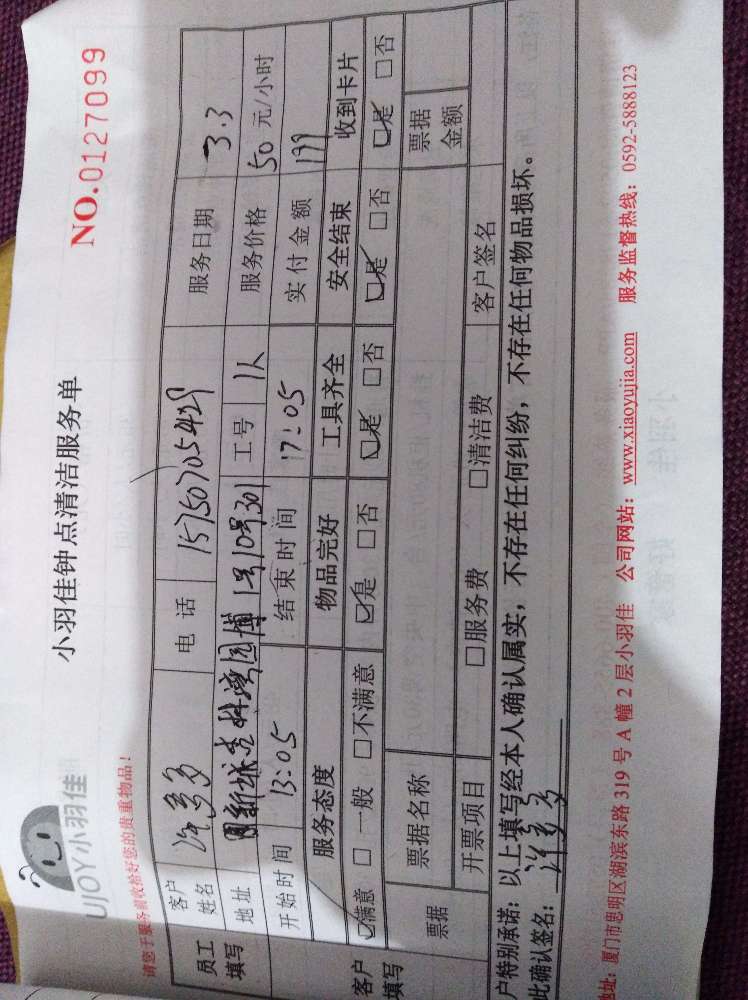 UJOY小羽佳
小羽佳钟点清洁服务单
NO.0127099
请您于服务前收拾好您的贵重物品!
员工填写 客户姓名 许多多 电话 15750705429 服务日期 3.3
地址 新城 湾园博1号10号301 工号 1人 服务价格 50元/小时
开始时间 13:05 结束时间 17:05 实付金额 199
客户填写 服务态度 物品完好 工具齐全 安全结束 收到卡片
☑满意 □一般 □不满意 ☑是 □否 ☑是 □否 ☑是 □否 ☑是 □否
票据 票据名称 票据金额
开票项目 □服务费 □清洁费 客户签名
户特别承诺:以上填写经本人确认属实,不存在任何纠纷,不存在任何物品损坏。
此确认签名:许多多
地址:厦门市思明区湖滨东路319号A幢2层小羽佳 公司网站:www.xiaoyujia.com 服务监督热线:0592-5888123